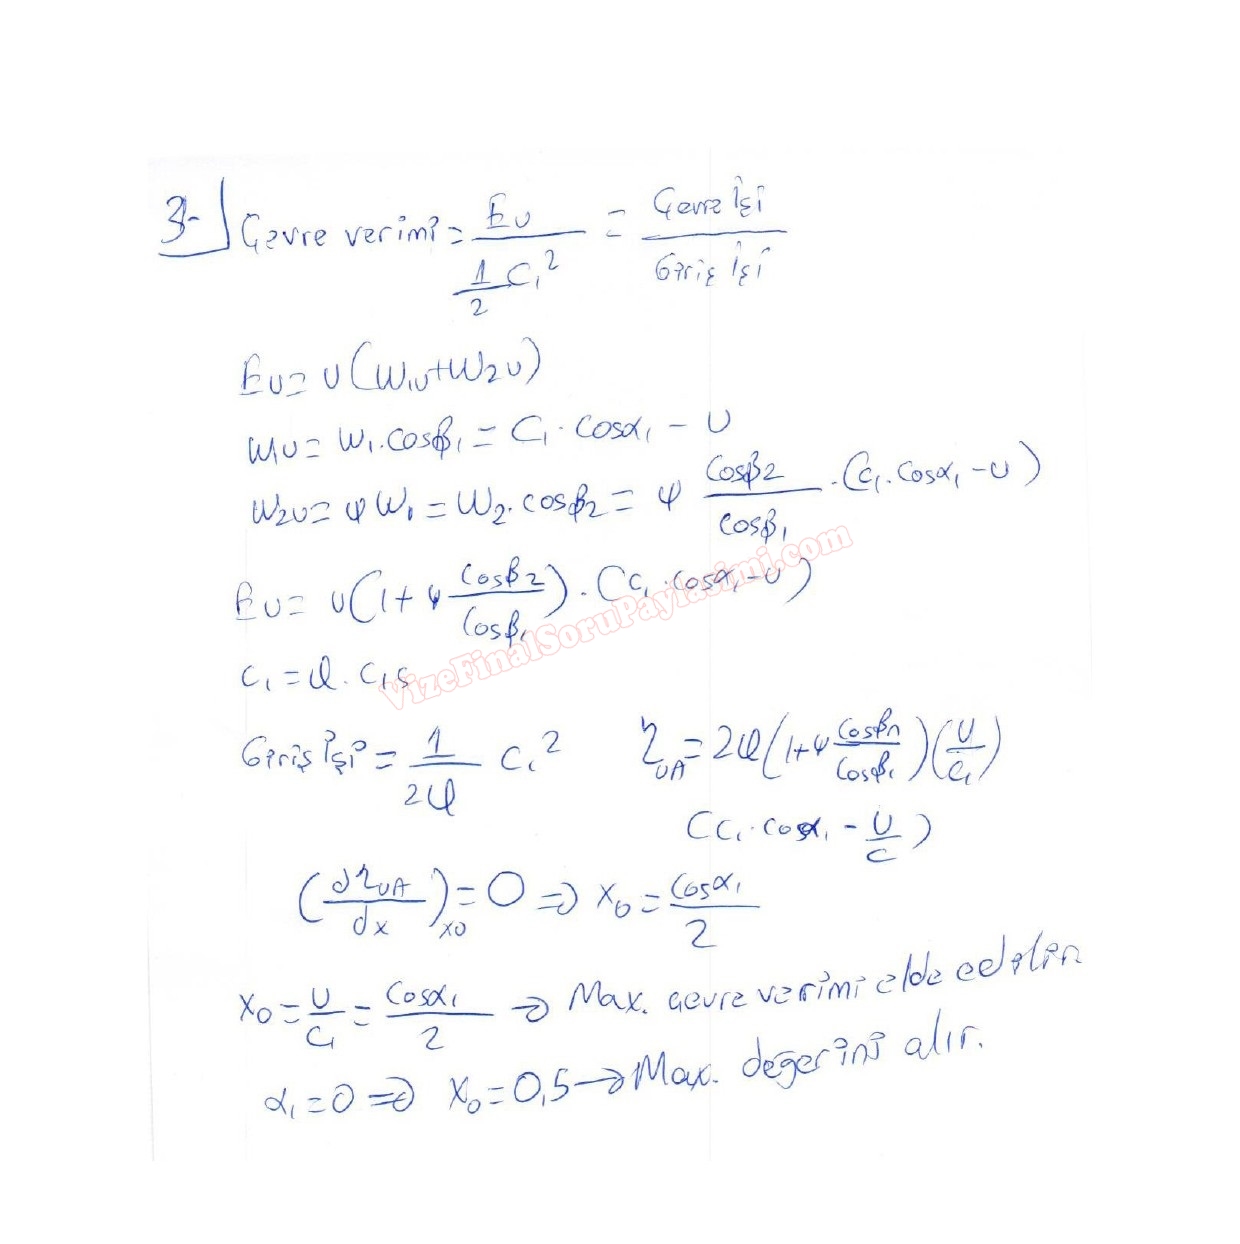 3-) Çevre verimi = Eu / (1/2 C₁²) = Çevre İşi / Giriş İşi
Eu = U(W₁u + W₂u)
W₁u = W₁.cosβ₁ = C₁.cosα₁ - U
W₂u = ψ W₁ = W₂.cosβ₂ = ψ cosβ₂ / cosβ₁ .(C₁.cosα₁ - U)
Eu = U(1 + ψ cosβ₂ / cosβ₁).(C₁.cosα₁ - U)
C₁ = φ. C₁s
Giriş İşi = 1 / 2φ C₁²
ηuA = 2φ(1 + ψ cosβ₂ / cosβ₁)(U / C₁)
(C₁.cosα₁ - U / C)
(dηuA / dx)x₀ = 0 ⇒ X₀ = cosα₁ / 2
X₀ = U / C₁ = cosα₁ / 2 → Max. çevre verimi elde edilen
α₁ = 0 ⇒ X₀ = 0,5 → Max. değerini alır.
VizeFinalSoruPaylasimi.com